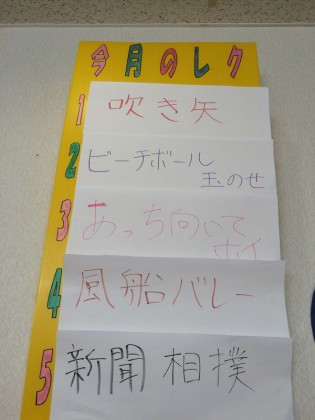 今月のレク
1 吹き矢
2 ビーチボール
玉のせ
3 あっち向いて
ホイ
4 風船バレー
5 新聞相撲